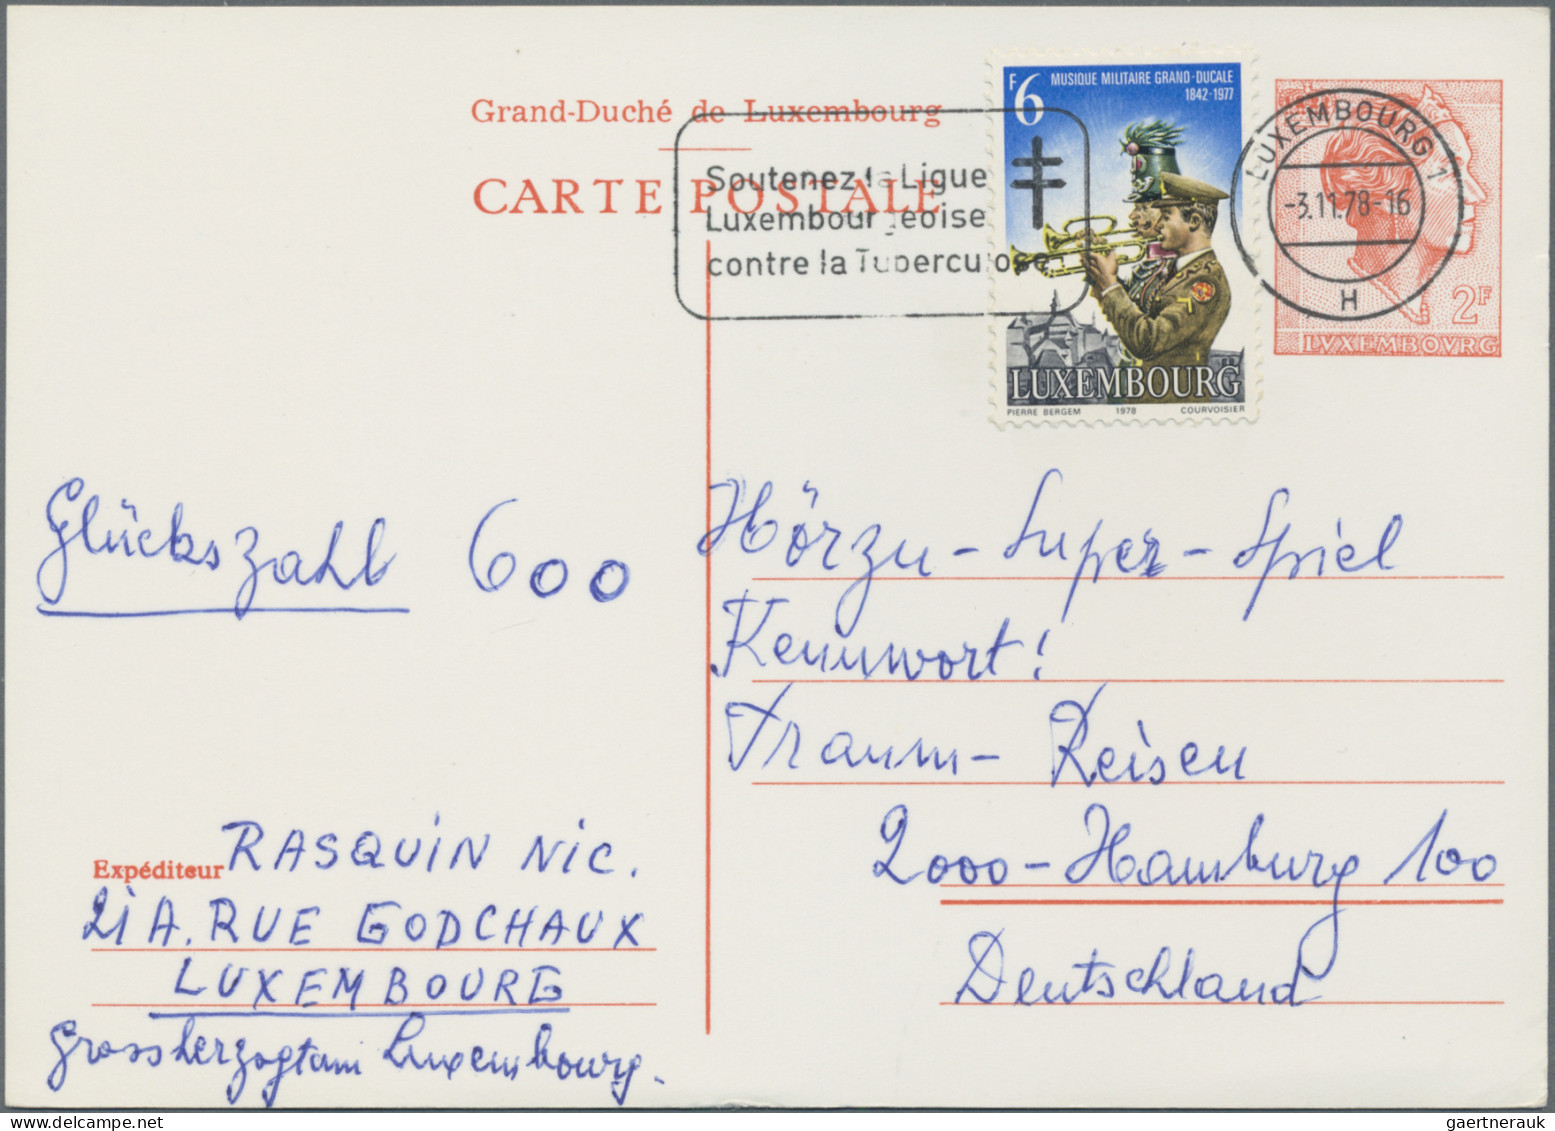 Grand-Duché de Luxembourg
CARTE POSTALE
Soutenez la Ligue
Luxembourgeoise
contre la Tuberculose
F6
MUSIQUE MILITAIRE GRAND-DUCALE
1842-1977
LUXEMBOURG
PIERRE BERGEM 1978 COURVOISIER
LUXEMBOURG 1
-3.11.78-16
H
2F
LVXEMBOVRG
Glückszahl 600
Hörzu-Super-Spiel
Kennwort!
Traum-Reisen
2000-Hamburg 100
Deutschland
Expéditeur RASQUIN NIC.
21A. RUE GODCHAUX
LUXEMBOURG
Grossherzogtum Luxembourg.
gaertnerauk